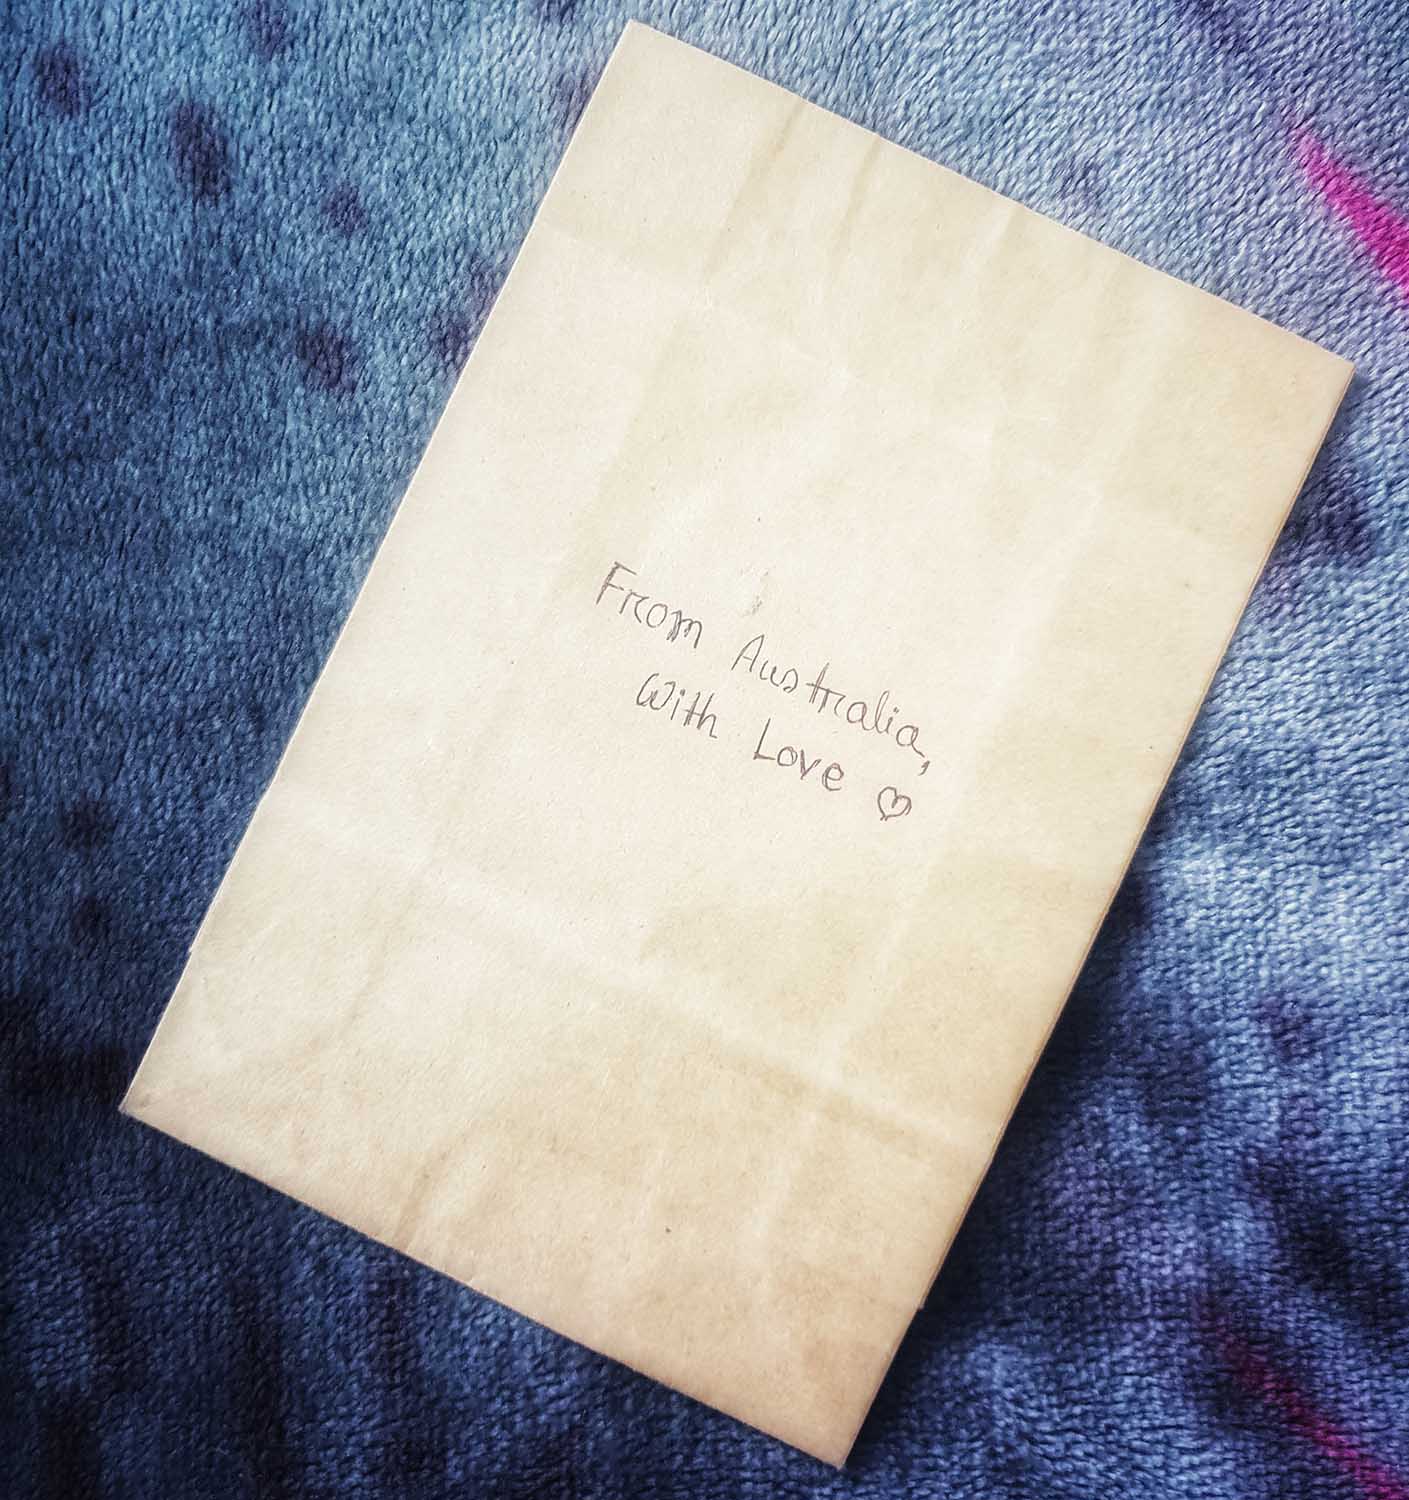 From Australia,
With Love ♡